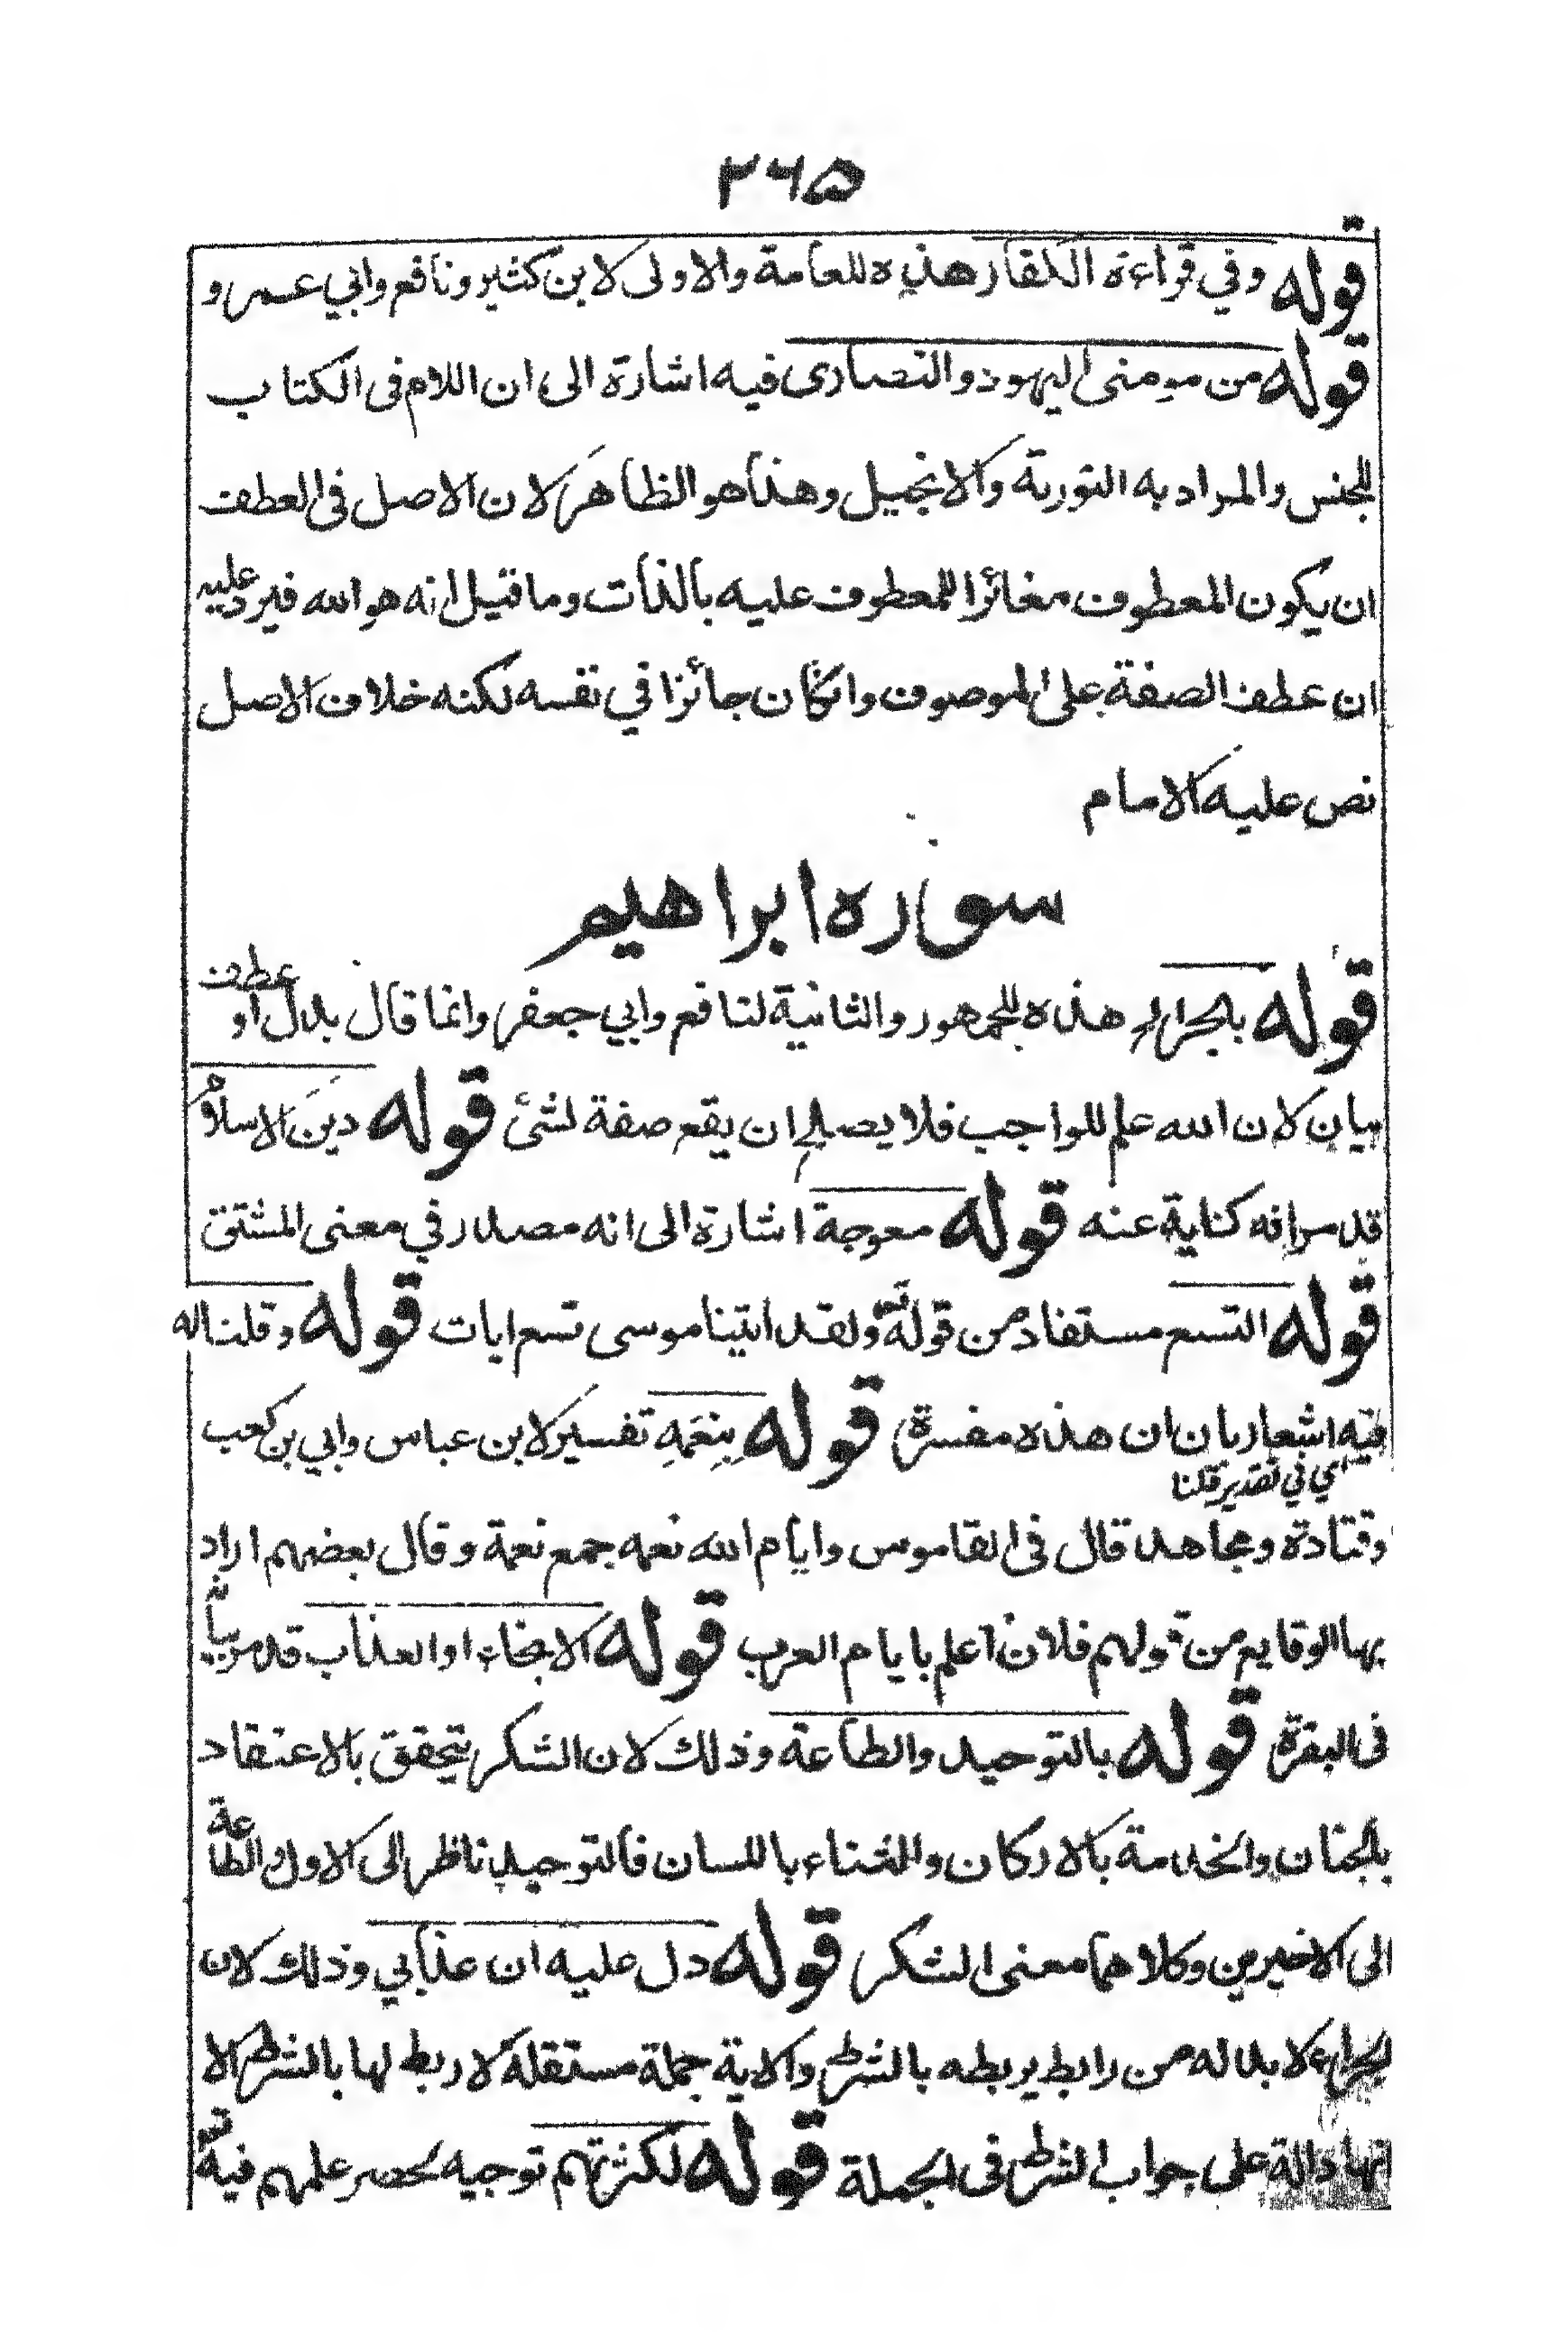 ۲۶۵
قوله وفي قراءة الكفار هذه للعامة والاولى لابن كثير ونافع وابي عمرو
قوله من مومنى اليهود والنصارى فيه اشارة الى ان اللام فى الكتاب
للجنس والمراد به التورية والانجيل وهذا هو الظاهر لان الاصل فى العطف
ان يكون المعطوف مغائرا للمعطوف عليه بالذات وما قيل انه هو الله فيرد عليه
ان عطف الصفة على الموصوف وانكان جائزا في نفسه لكنه خلاف الاصل
نص عليه الامام
سوره ابراهيم
قوله بالجر الخ هذه للجمهور والثانية لنافع وابي جعفر وانما قال بدل او عطف
بيان لان الله علم للواجب فلا يصلح ان يقع صفة لشئ قوله دين الاسلام
قد مر انه كناية عنه قوله معوجة اشارة الى انه مصدر في معنى المشتق
قوله التسع مستفاد من قوله تع ولقد اتينا موسى تسع ايات قوله وقلنا له
فيه اشعار بان ان هذه مفسرة قوله بنعمه تفسير لابن عباس وابي بن كعب
اي في تقدير قلنا
وقتادة ومجاهد قال فى القاموس وايام الله نعمه جمع نعمة وقال بعضهم اراد
بها الوقايع من قولهم فلان اعلم بايام العرب قوله الانجاء او العذاب قد مر بيانه
فى البقرة قوله بالتوحيد والطاعة وذلك لان الشكر يتحقق بالاعتقاد
بالجنان والخدمة بالاركان والثناء باللسان فالتوحيد ناظر الى الاول والطاعة
الى الاخيرين وكلاهما معنى الشكر قوله دل عليه ان عذابي وذلك لان
الجزاء لا بد له من رابط يربطه بالشرط والاية جملة مستقلة لا ربط لها بالشرط الا
انها دالة على جواب الشرط فى الجملة قوله لكثرتهم توجيه لحصر علمهم فيه تع